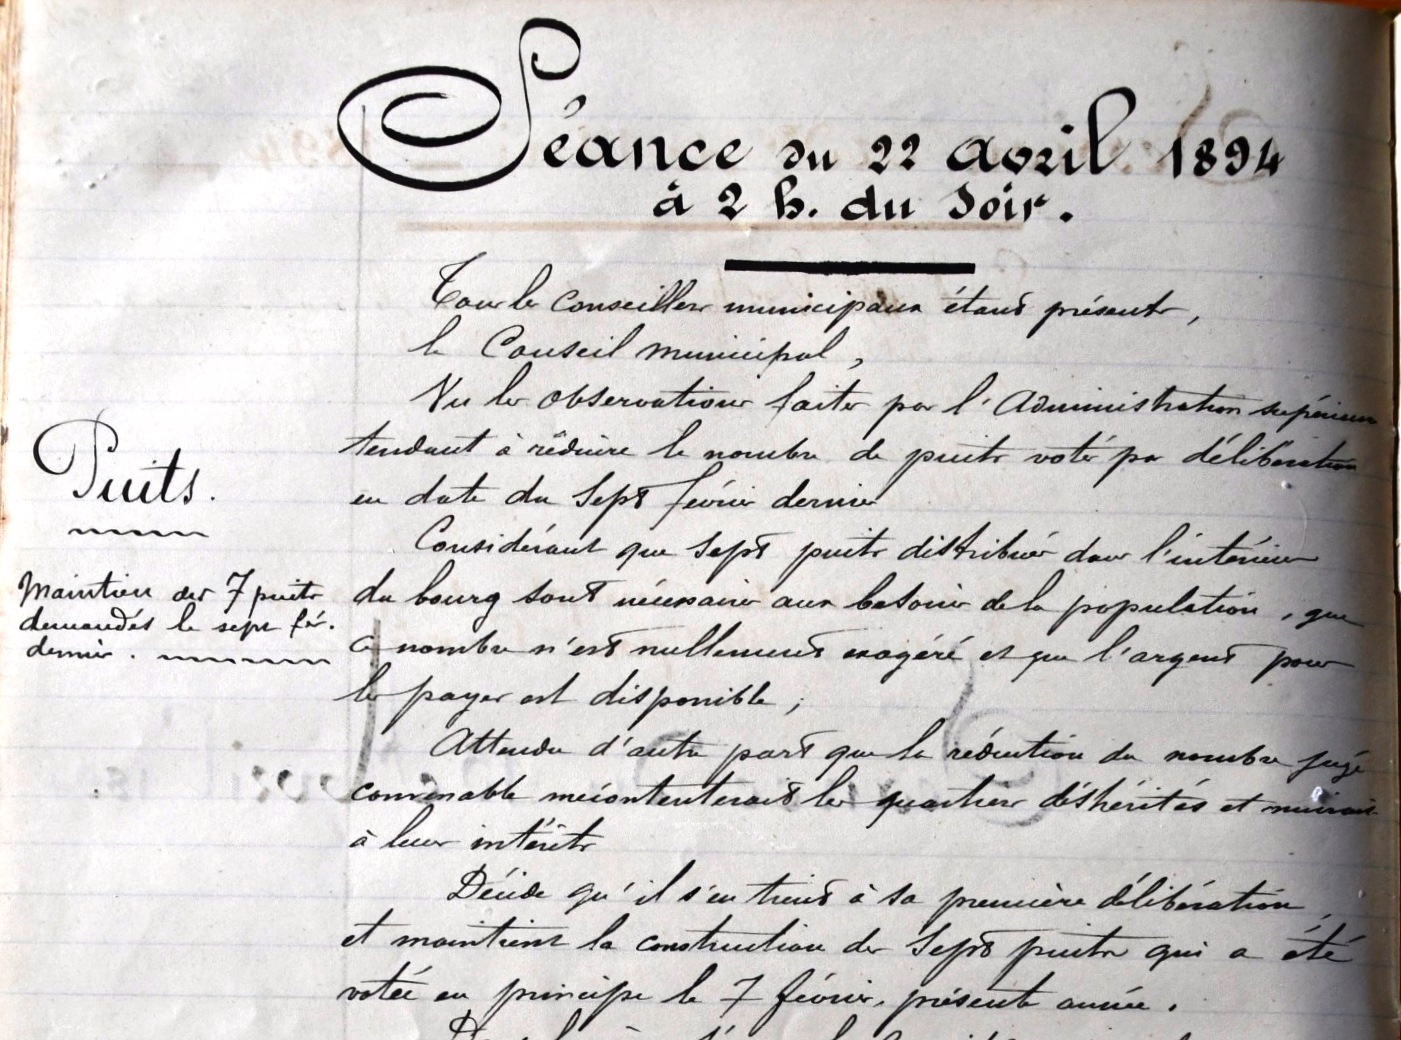 Séance du 22 avril 1894
à 2 h. du soir.
Tous les Conseillers municipaux étant présents,
le Conseil municipal,
Vu les observations faites par l'Administration supérieure
tendant à réduire le nombre de puits votés par délibération
en date du sept février dernier
Puits.
Considérant que sept puits distribués dans l'intérieur
Maintien des 7 puits
demandés le sept fév.
dernier.
du bourg sont nécessaires aux besoins de la population, que
ce nombre n'est nullement exagéré et que l'argent pour
les payer est disponible;
Attendu d'autre part que la réduction du nombre jugé
convenable mécontenterait les quartiers déshérités et nuirait
à leurs intérêts
Décide qu'il s'en tient à sa première délibération,
et maintient la construction des sept puits qui a été
votée en principe le 7 février, présente année.